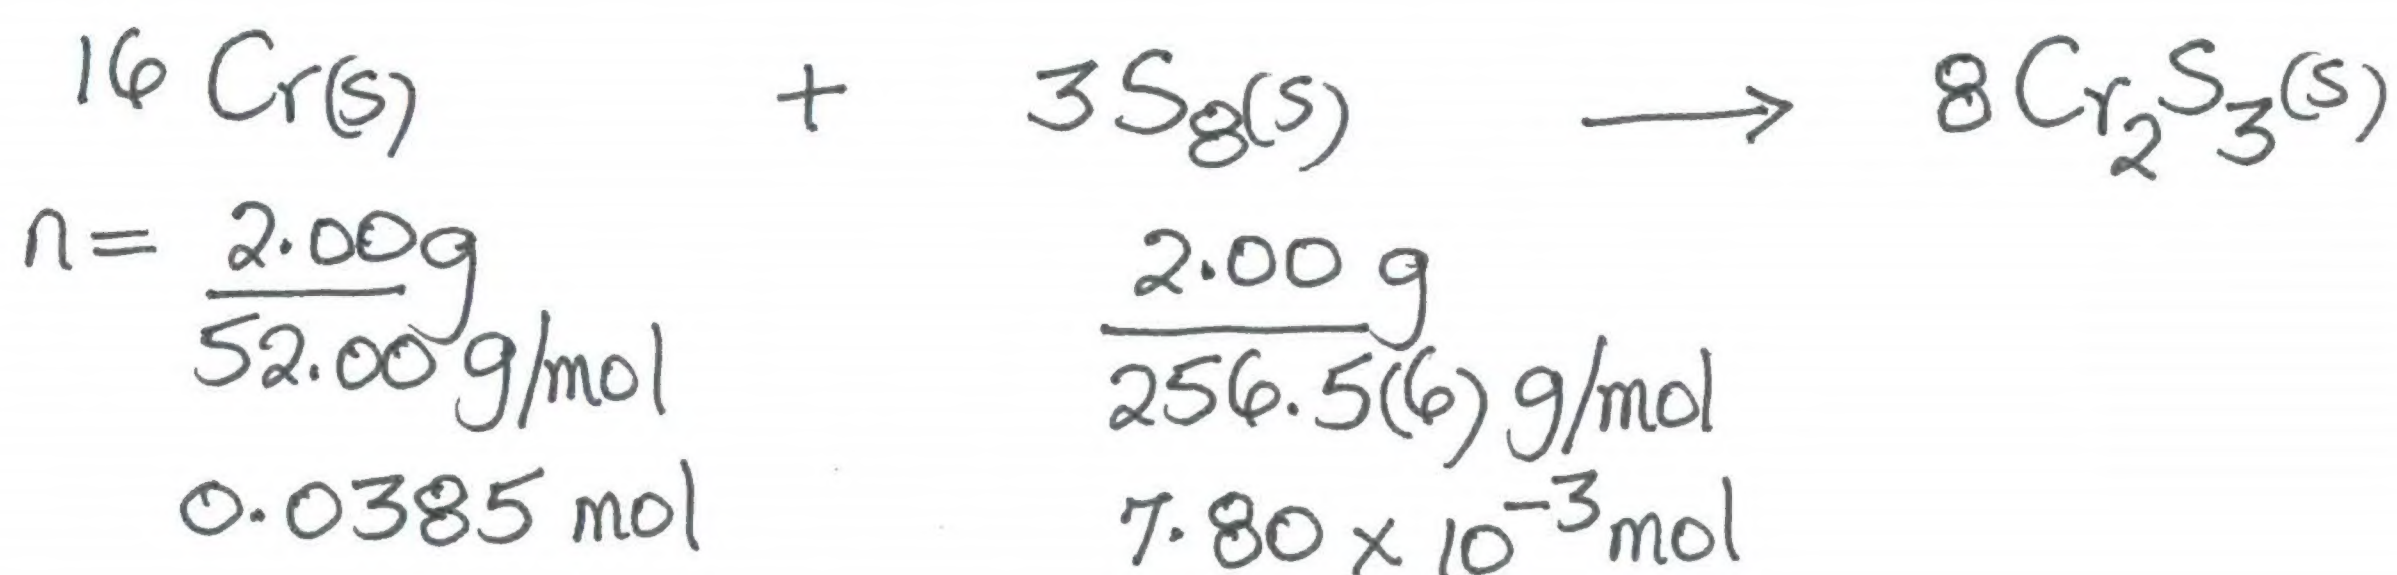 16 Cr(s) + 3 S₈(s) ⟶ 8 Cr₂S₃(s)
n = 2.00g 2.00 g
52.00 g/mol 256.5(6) g/mol
0.0385 mol 7.80 × 10⁻³ mol